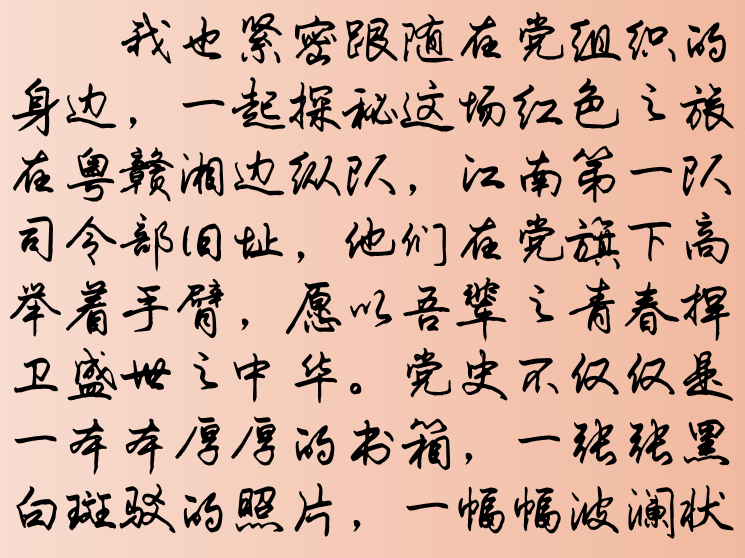 我也紧密跟随在党组织的
身边，一起探秘这场红色之旅
在粤赣湘边纵队，江南第一队
司令部旧址，他们在党旗下高
举着手臂，愿以吾辈之青春捍
卫盛世之中华。党史不仅仅是
一本本厚厚的书箱，一张张黑
白斑驳的照片，一幅幅波澜状